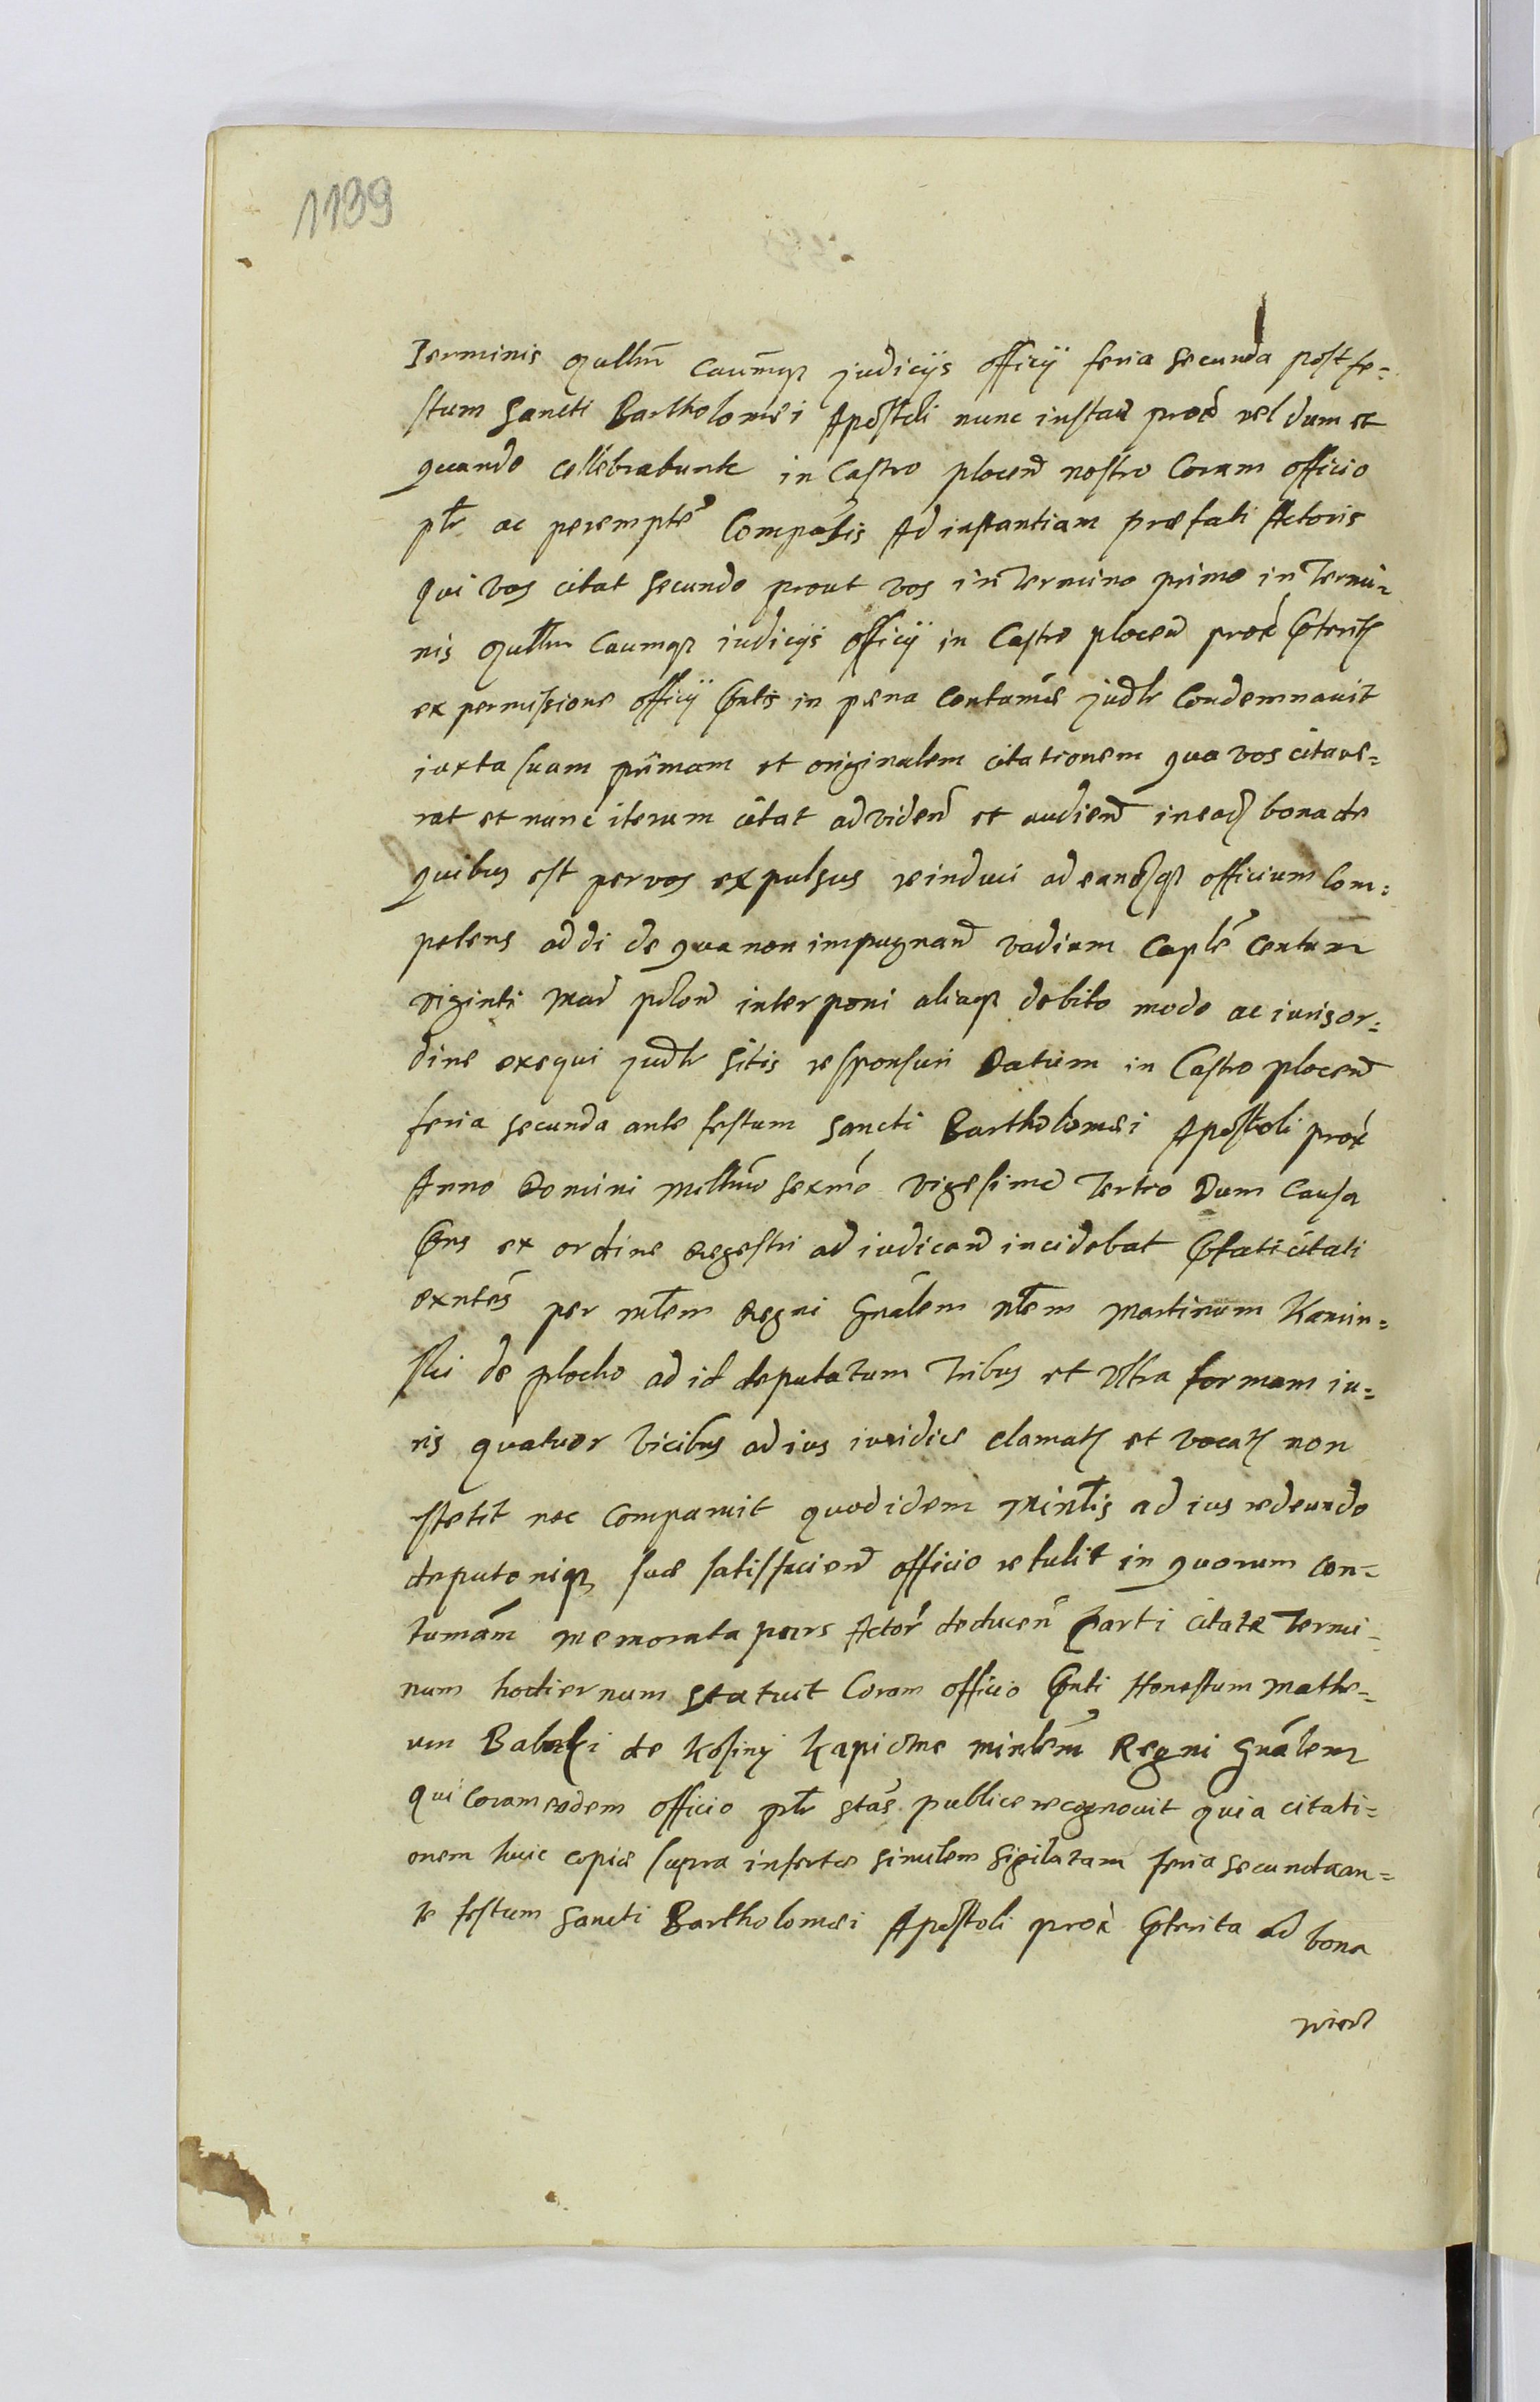 1139
Terminis qullm̄ caūmqȝ judicijs officij feria secunda post fe=
stum Sancti Bartholomei Apostoli nunc instan̄ prox̄ vel dum et
quando cellebrabunt in Castro plocen̄ nostro Coram officio
plr̄ ac peremptē Comparēis Ad instantiam præfati Actoris
qui vos citat secundo prout vos in termino primo in Termi=
nis qullm̄ caumqȝ iudicijs officij in Castro plocen̄ prox̄ pteritȝ
ex permissione officij pntis in pæna contamciæ judlr condemnauit
iuxta suam primam et originalem citationem qua vos citaue=
rat et nunc iterum citat ad viden̄ et audien̄ in eadȝ bona de
quibus est per vos expulsus reinduci ad eandȝqȝ officium com=
petens addi de qua non impugnan̄ vadium caplē centum
viginti mar̄ polon̄ interponi aliaqȝ debito modo ac iuris or=
dine exequi judlr sitis responsuri Datum in Castro plocen̄
feria secunda ante festum Sancti Bartholomæi Apostoli prox̄
Anno Domini Millmō sexmō vigesimo Tertio Dum causa
pns ex ordine Regestri ad iudicand̄ incidebat pfati citati
exntēs per mlem Regni Gnālem nlem Martinum Kamin=
ski de plocko ad id deputatum Tribus et Vltra formam iu=
ris quatuor Vicibus ad ius iuridice clamatȝ et vocatȝ non
stetit nec comparuit quod idem Minlis ad ius redeundo
deputoniqȝ suæ satisfacien̄ officio retulit in quorum con=
tumām memorata pars Actor̄ deducen̄ Parti citatæ Termi=
num hodiernum statuit Coram officio pnti Honestum Mathe=
um Babski de Kosiny Kapiczne minlem̄ Regni Gnālem
qui coram eodem officio plr stās publice recognouit quia citati=
onem huic copiæ supra insertæ simulem sigilatam feria secunda an=
te festum Sancti Bartholomæi Apostoli prox̄ pterita ad bona